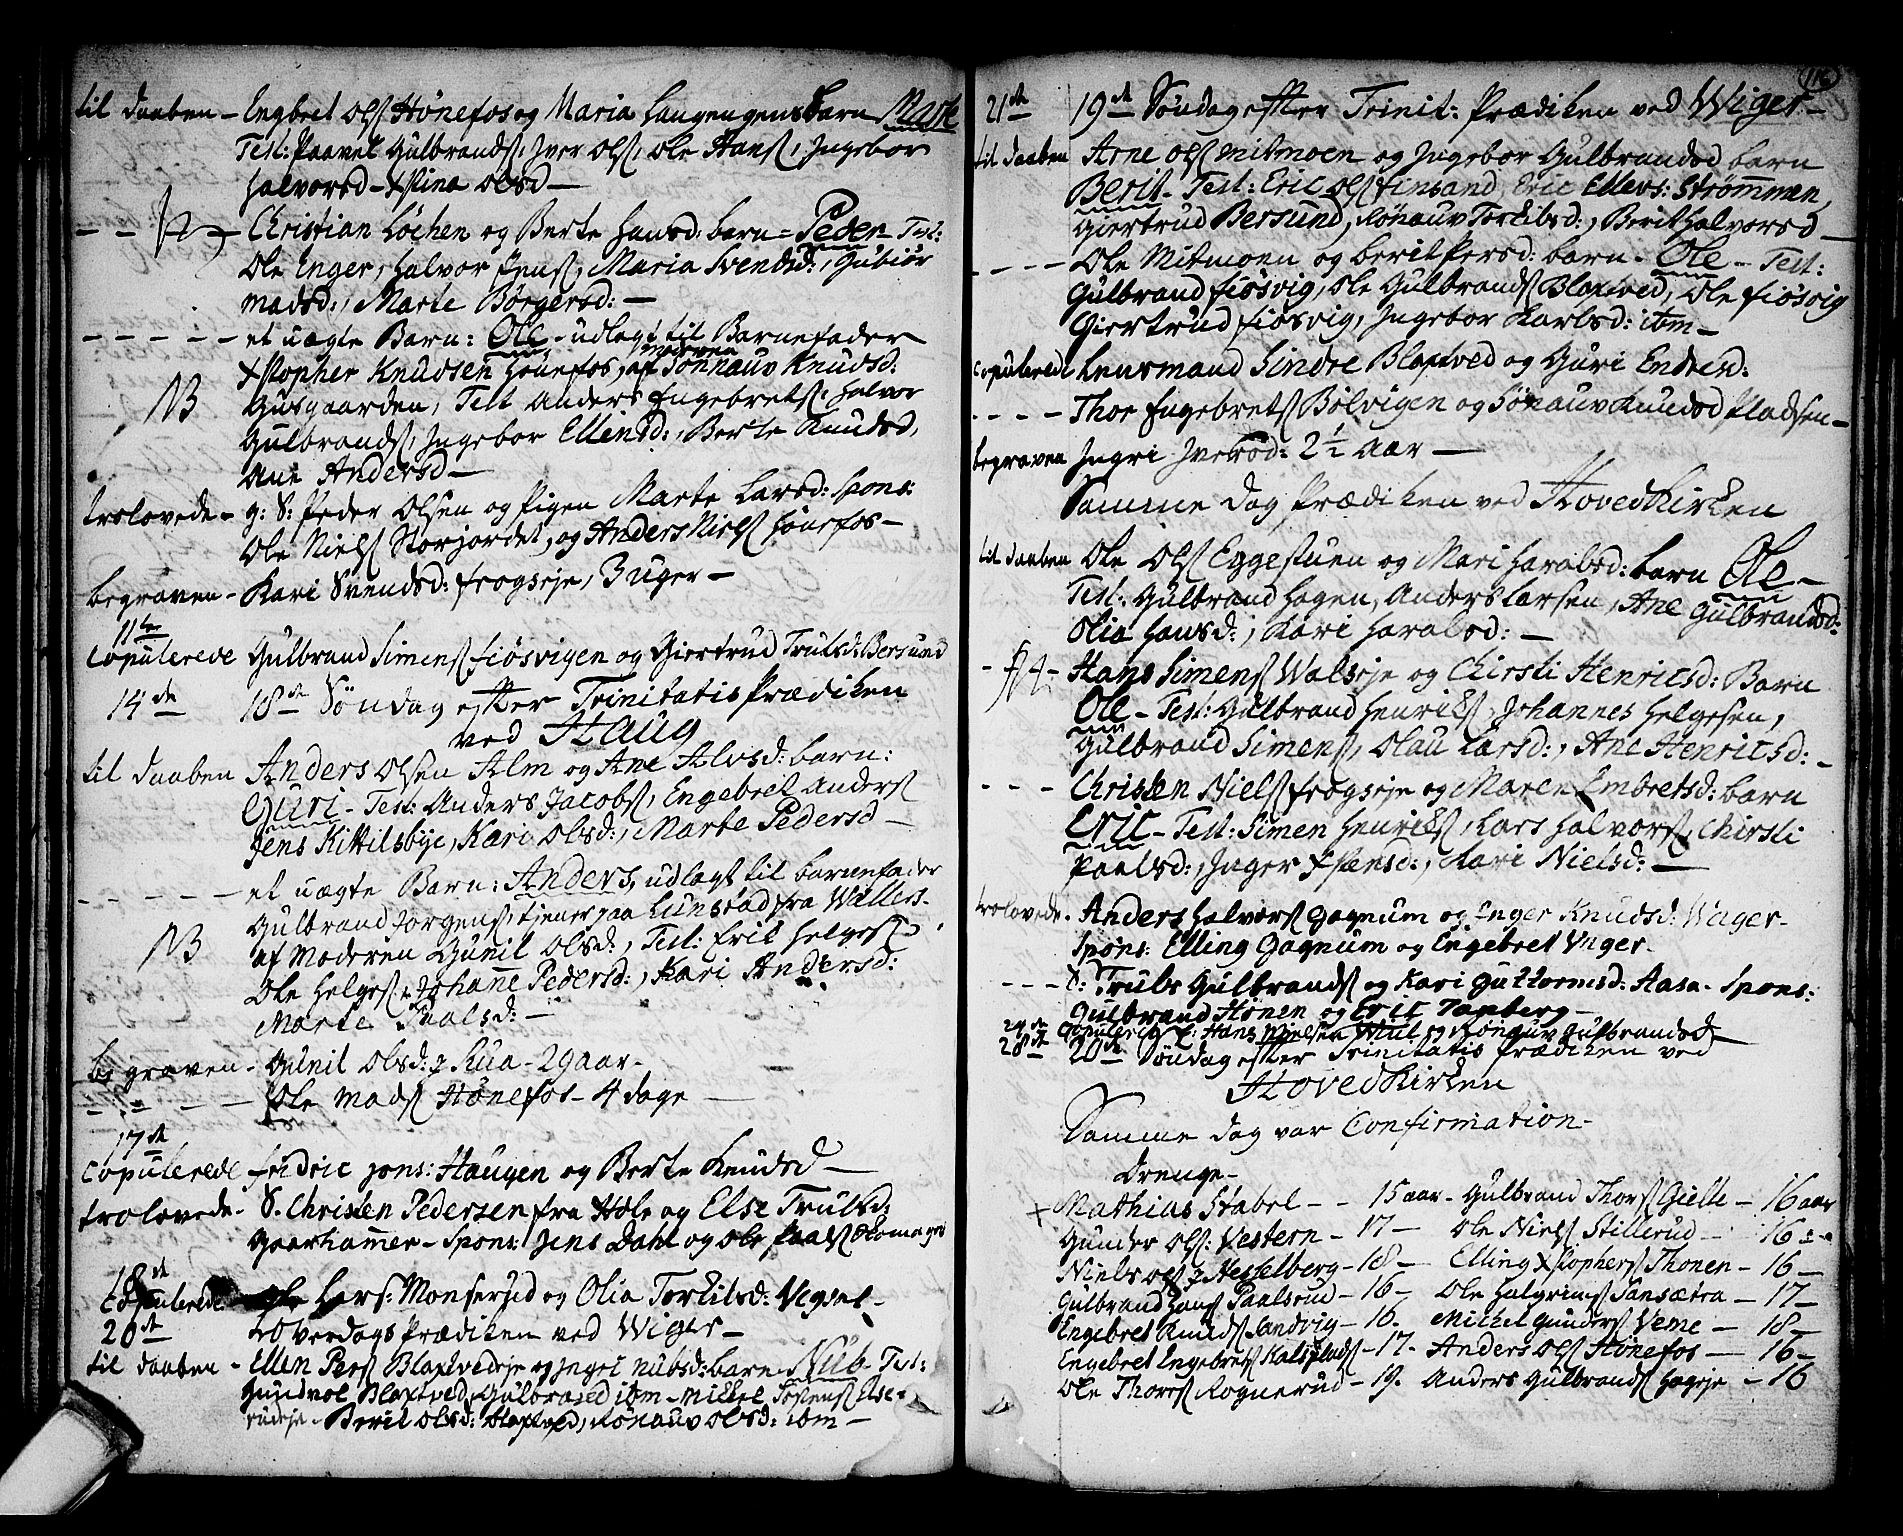 til daaben – Engbret Olſ Hønefos og Maria Haugengens barn Marte
Test: Paavel Gulbrandſ, Jver Olſ, Ole Hanſ, Jngebor
Halvorsd – Xstina Olsd –
Christian Løchen og Berte Hansd: barn = Peder Test:
Ole Enger, Halvor Jenſ, Maria Svendsd:, Gubiør
madsd:, Marte Børgersd: –
– – – – – et uægte Barn: Ole – udlagt til Barnefader
Xstopher Knudsen Hønefos, af moderen Rønnauv Knudsd:
NB Gusgaarden, Test Anders Engebretſ, Halvor
Gulbrandſ, Jngebor Ellensd:, Berte Knudsd,
Ane Andersd –
trolovede – g: S: Peder Olsen og Pigen Marte Larsd: Spons:
Ole Nielſ Storjordet, og Anders Nielſ Hønefos –
begraven – Kari Svendsd: frogseje, 3 uger –
11te
Copulerede Gulbrand Simenſ fiøsvigen og Giertrud Trulsd: Bersund
14de 18de Søndag efter Trinitatis Prædiken
ved Haug
til daaben Anders Olsen Alm og Ane Alvsd: barn:
Guri – Test: Anders Jacobſ, Engebret Andersſ
Jens Kittilsbye, Kari Olsd:, Marte Pedersd –
– – – – – et uægte Barn: Anders, udlagt til barnefader
Gulbrand Jorgenſ, tjener paa Lunstad fra Wallers.
NB af Moderen Gunil Olsd:, Test: Eric Helgeſ
Ole Helgeſ, Johanne Pedersd:, Kari Andersd:
Marte Paalsd: –
begraven – Gunil Olsd: Hua – 29 aar –
– – – – Ole Madſ Hønefos – 4 dage
17de
Copulerede fridric Jons: Haugen og Berte Knudsd –
trolovede – S. Christen Pedersen fra Hole og Else Trulsd:
Gaarhammer – Spons: Jens Dahl og Ole Paalſ
18de
Copulerede Ole Lars: Monserud og Olia Torkilsd: Vegset –
20de Loverdags Prædiken ved Wiger –
til daaben – Ellen Perſ Blaxtvedeje og Jngri Nubsd: barn – Nub – Test:
Gundvol Blaxtved, Gulbrand ibm – Mikkel Tostenſ Else-
rudeje – Berit Olsd: Blaxtved, Rønauv Olsd: ibm –
116
21de 19de Søndag efter Trinit: Prædiken ved Wiger –
til daaben Arne Olſ Mitmoen og Jngebor Gulbrandsd barn
Berit – Test: Eric Olſ Finsand, Eric Ellevs: Strømmen,
Giertrud Bersund, Rønauv Torkilsd:, Berit Halvorsd –
– – – – Ole Mitmoen og Berit Persd: barn – Ole – Test:
Gulbrand fiøsvig, Ole Gulbrandſ Blaxtved, Ole fiøsvig
Giertrud fiøsvig, Jngebor Karlsd: ibm –
Copulerede Lensmand Sindre Blaxtved og Guri Endresd:
– – – – Thor Engebretſ Bølvigen og Rønauv Knudsd Pladsen –
begraven Jngri Jversd: 2 1/2 Aar –
Samme Dag Prædiken ved Hovedkirken
til daaben Ole Olſ Eggestuen og Mari Haralsd: barn Ole –
Test: Gulbrand Hagen, Anders Larsen, Ane Gulbrandsd:
Olia Hansd:, Kari Haralsd: –
Hans Simenſ Walseje og Chirsti Henricsd: Barn
Ole – Test: Gulbrand Henrikſ, Johannes Helgesen,
Gulbrand Simenſ, Olau Larsd:, Ane Henricsd: –
– – – Christen Nielſ frogseje og Maren Embretsd: barn
Eric – Test: Simen Henrikſ, Lars Halvorſ, Chirsti
Paalsd:, Jnger Xstensd:, Kari Nielsd: –
trolovede – Anders Halvorſ Gagnum og Jnger Knudsd: Wager –
Spons: Elling Gagnum og Engebret Unger –
– – – S: Truls Gulbrandſ og Kari Guttormsd: Aasa – Spons:
Gulbrand Hønen og Eric Tanberg –
24de Copulerede S: Hans Nielsen og Rønauv Gulbrandsd –
28de 20de Søndag efter Trinitatis Prædiken ved
Hovedkirken
Samme Dag var Confirmation –
Drenge –
Mathias Stabel – – 15 aar – Gulbrand Thorſ Gielle – 16 aar
Gunder Olſ: Vestern – 17 – Ole Nielſ Stillerud – 16
Niels Olſ Hesselberg – 18 – Elling Xstopherſ Thonen – 16 –
Gulbrand Hanſ Paalsrud – 16 – Ole Halgrimſ Sansætra – 17 –
Engebret Knudſ Sandvig – 16. Mickel Gunderſ Veme – 18 –
Engebret Engebretſ Kalsplads – 17. Anders Olſ Hønefos – 16 –
Ole Thorſ Rognerud – 19. Anders Gulbrandſ Hageje – 16